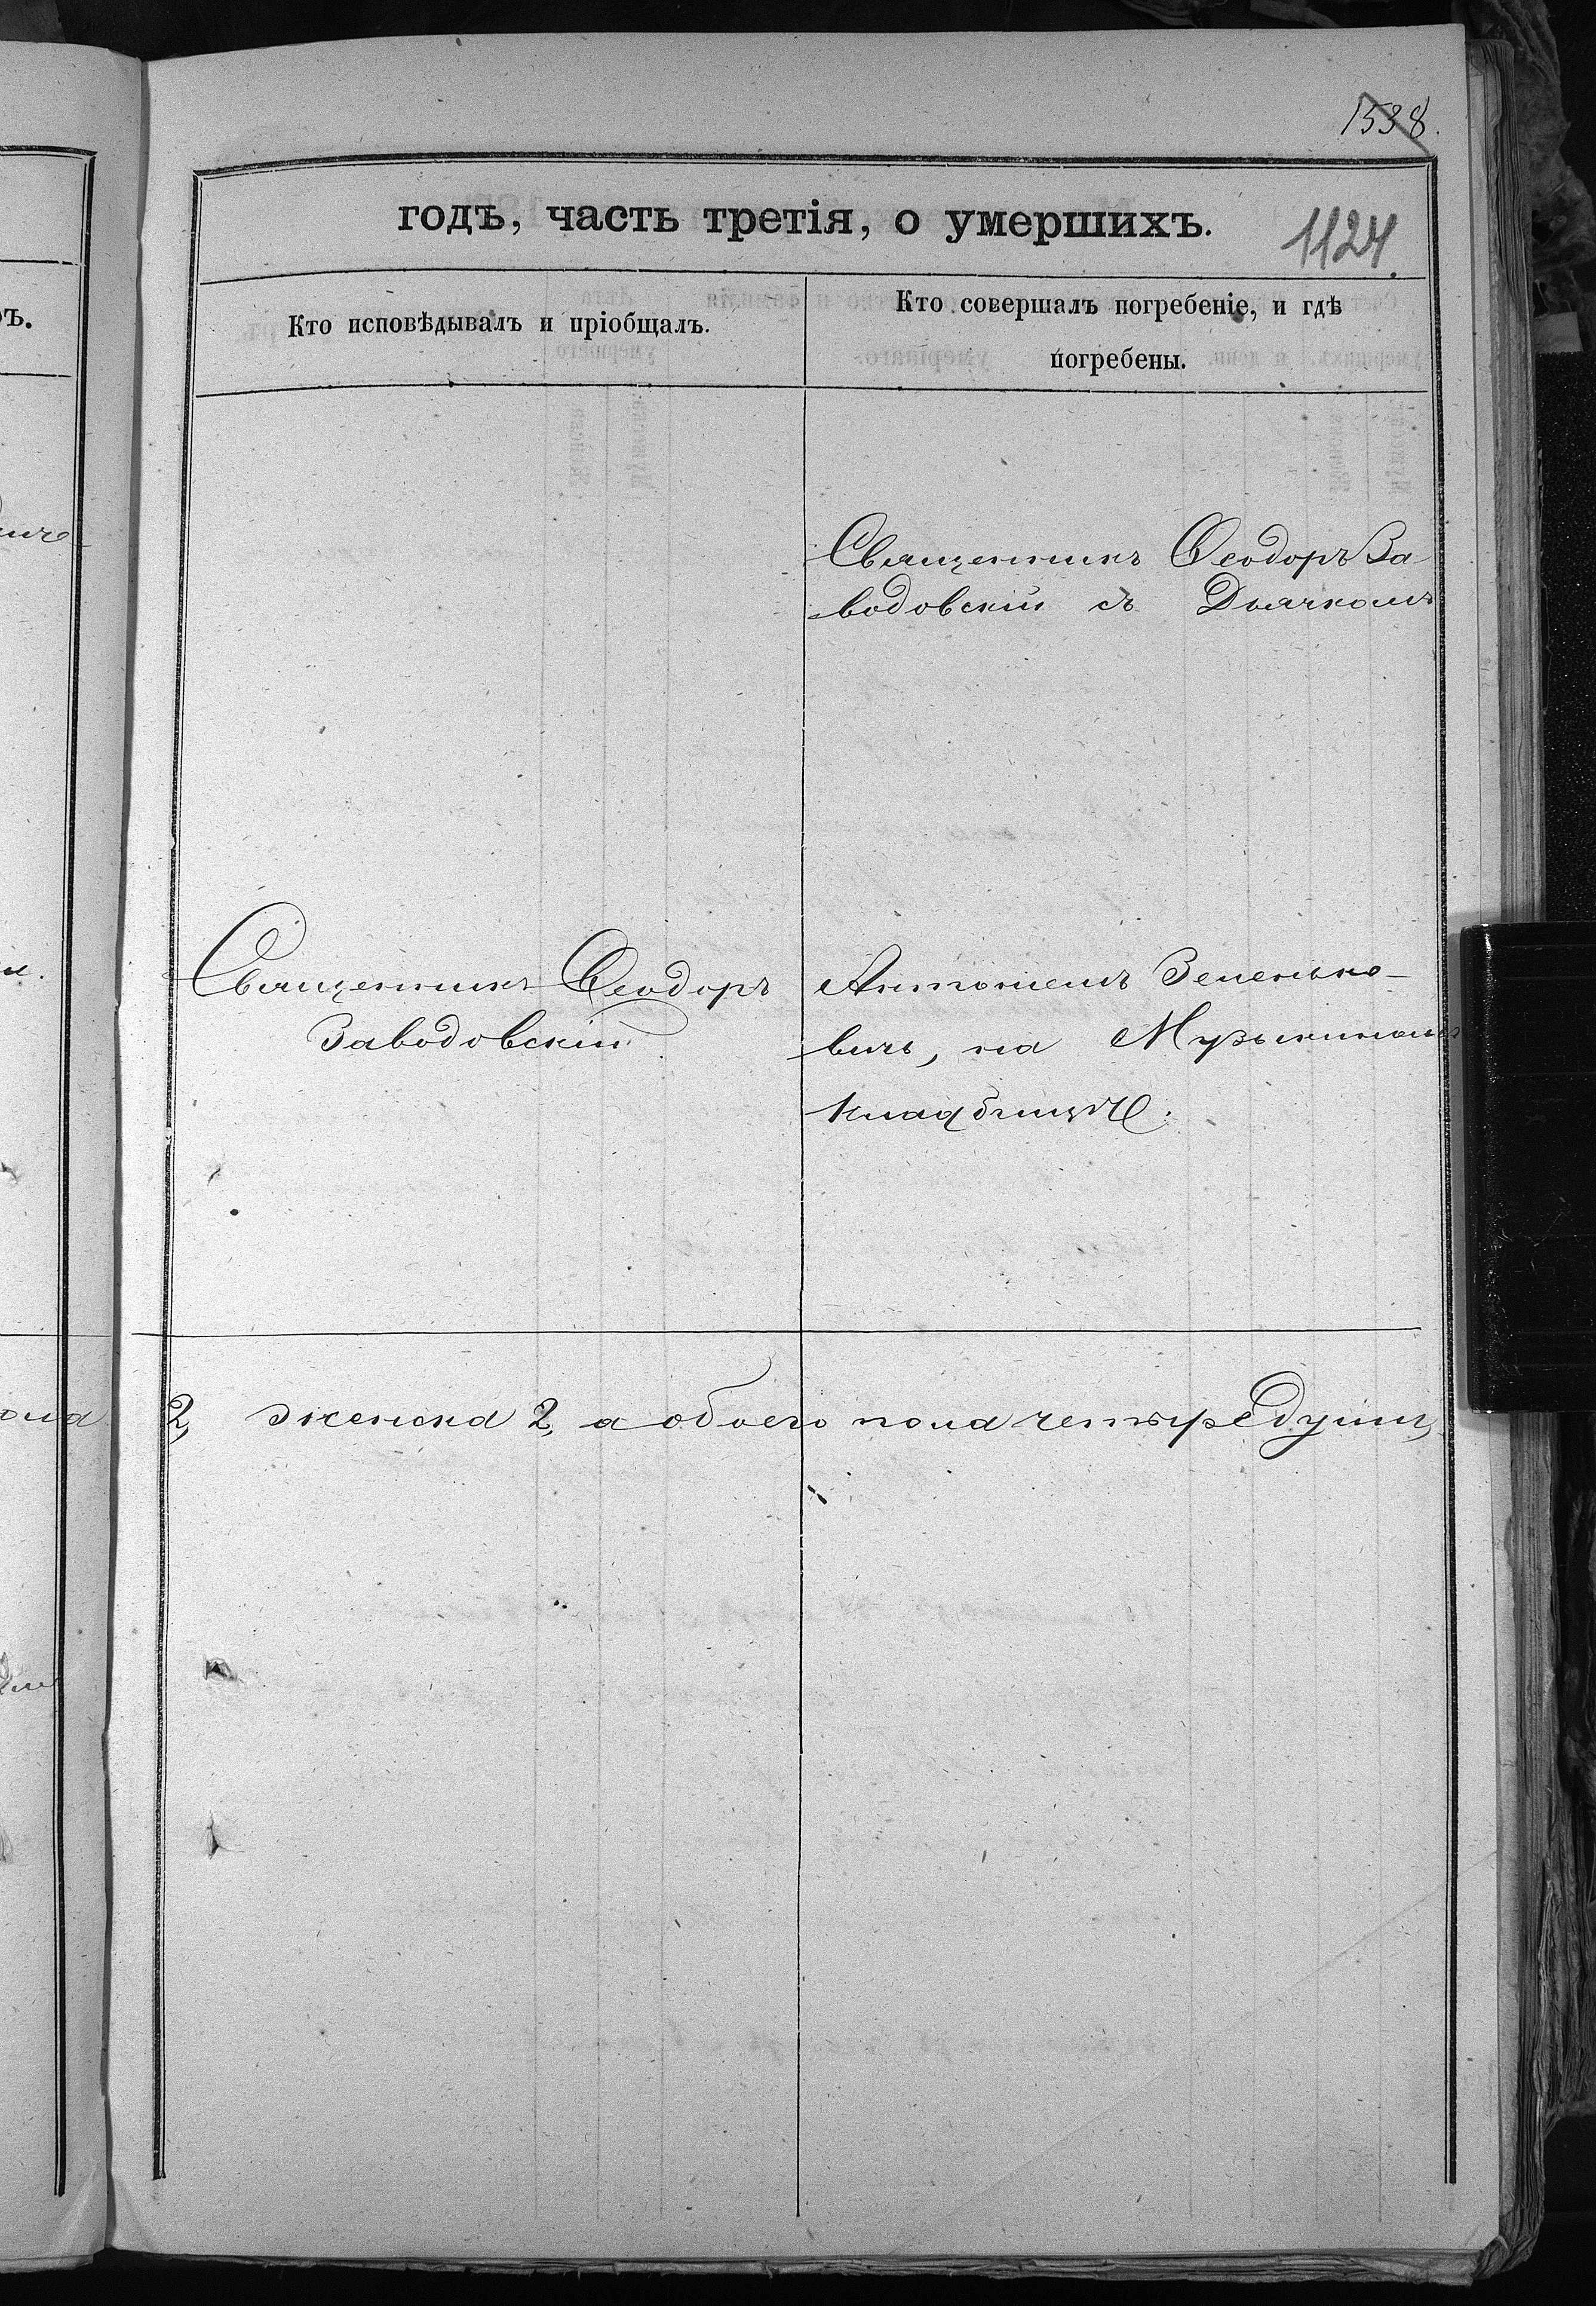 1538.
годъ, часть третія, о умершихъ.
1124
Кто исповѣдывалъ и пріобщалъ.
Кто совершалъ погребеніе, и гдѣ
погребены.
Священникъ Ѳеодоръ За-
водовскій съ Дьячкомъ
Священникъ Ѳеодоръ
Заводовскій
Антоніемъ Зенько-
вичъ, на
кладбищѣ.
2, женска 2, а обоего пола четыре души,